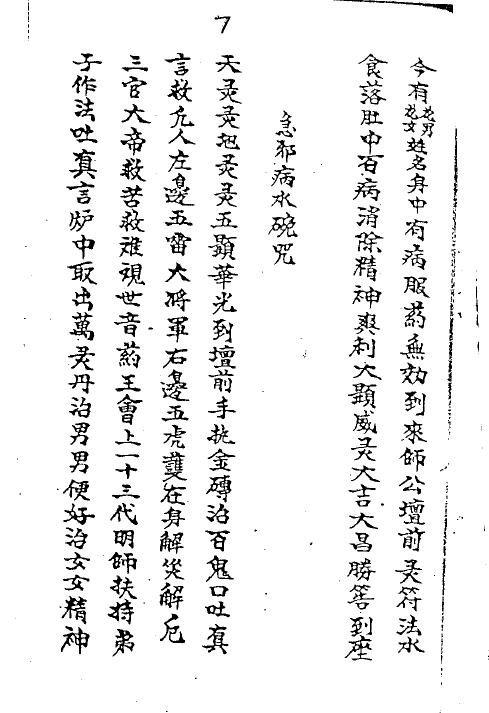 7
今有花男花女姓名身中有病服药無効到來師公壇前灵符法水
食落肚中百病消除精神爽利大顕威灵大吉大昌勝筶到座
急邪病水碗咒
天灵灵地灵灵五顕華光到壇前手㧯金磚治百鬼口吐真
言救凢人左边五雷大將軍右边五虎䕶在身解災解厄
三官大帝救苦救难視世音药王會上一十三代明師扶持弟
子作法吐真言炉中取出萬灵丹治男男便好治女女精神